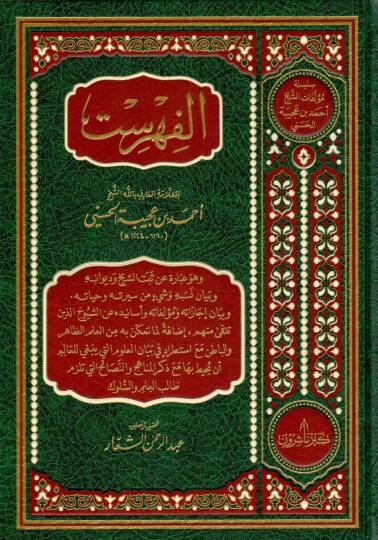 الفهرست
للعلامة العارف بالله الشيخ
أحمد بن عجيبة الحسني
(١١٦٠ - ١٢٢٤ ه)
وهو عبارة عن ثبت الشيخ وديوانه
وبيان نسبه وشيء من سيرته وحياته ،
وبيان إجازاته ومؤلفاته وأسانيده عن الشيوخ الذين
تلقى منهم ، إضافة لما تمكن به من العلم الظاهر
والباطن مع استطراد في بيان العلوم التي ينبغي للعالم
أن يحيط بها مع ذكر المناهج والنصائح التي تلزم
طالب العلم والسلوك
تحقيق وتعليق
عبد الرحمن الشعار
سلسلة
مؤلفات الشيخ
أحمد بن عجيبة
الحسني
كتاب ناشرون